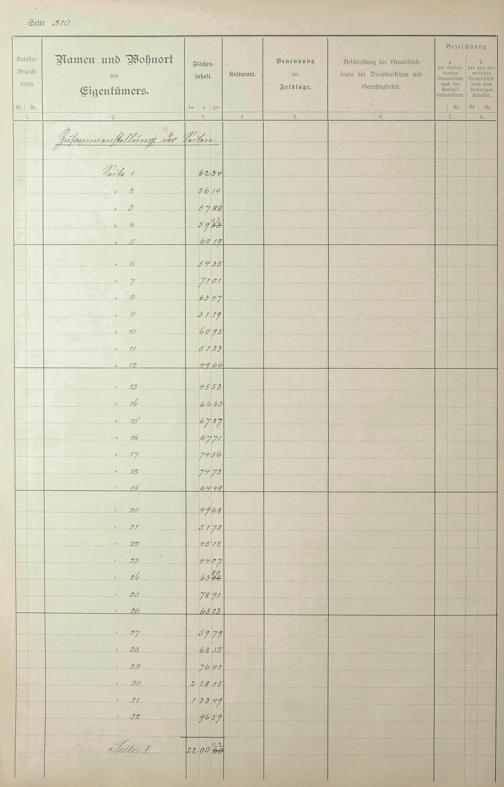 Seite 310
Namen und Wohnort
des
Eigentümers.
Flächen-
inhalt.
Kulturart.
Benennung
der
Feldlage.
Beschreibung der Grundstücke
sowie der Dienstbarkeiten und
Gerechtigkeiten.
Bezeichnung
ha a qm
Bl. Nr.
1. 2. 3. 4. 5. 6. 7. 8.
Zusammenstellung der Seiten.
Seite 1 6234
" 2 5614
" 3 5788
" 4 59
" 5 6019
" 6 5435
" 7 7101
" 8 6347
" 9 3119
" 10 6095
" 11 5133
" 12 4966
" 13 4553
" 14 6663
" 15 6727
" 16 6771
" 17 7456
" 18 7473
" 19 6448
" 20 4963
" 21 5175
" 22 4515
" 23 4407
" 24 63
" 25 7891
" 26 6523
" 27 5979
" 28 6835
" 29 7641
" 30 2 2815
" 31 1 3349
" 32 9659
Seite I 22 00